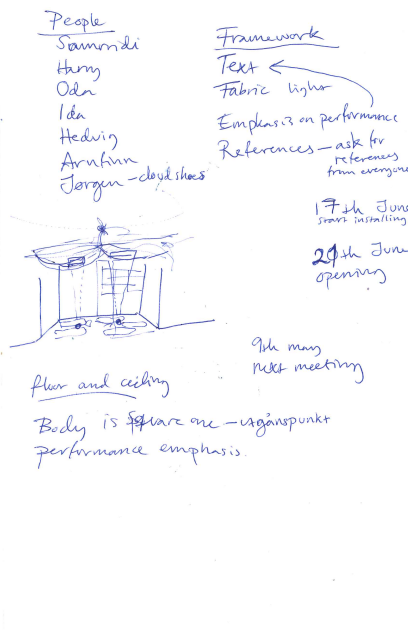 People
Samoridi
Harry
Oda
Ida
Hedvig
Arnfinn
Jørgen - cloud shoes
Framework
Text
Fabric light
Emphasis on performance
References - ask for
references
from everyone
17th June
start installing
29th June
opening
9th may
next meeting
floor and ceiling
Body is square one - utgånspunkt
performance emphasis.